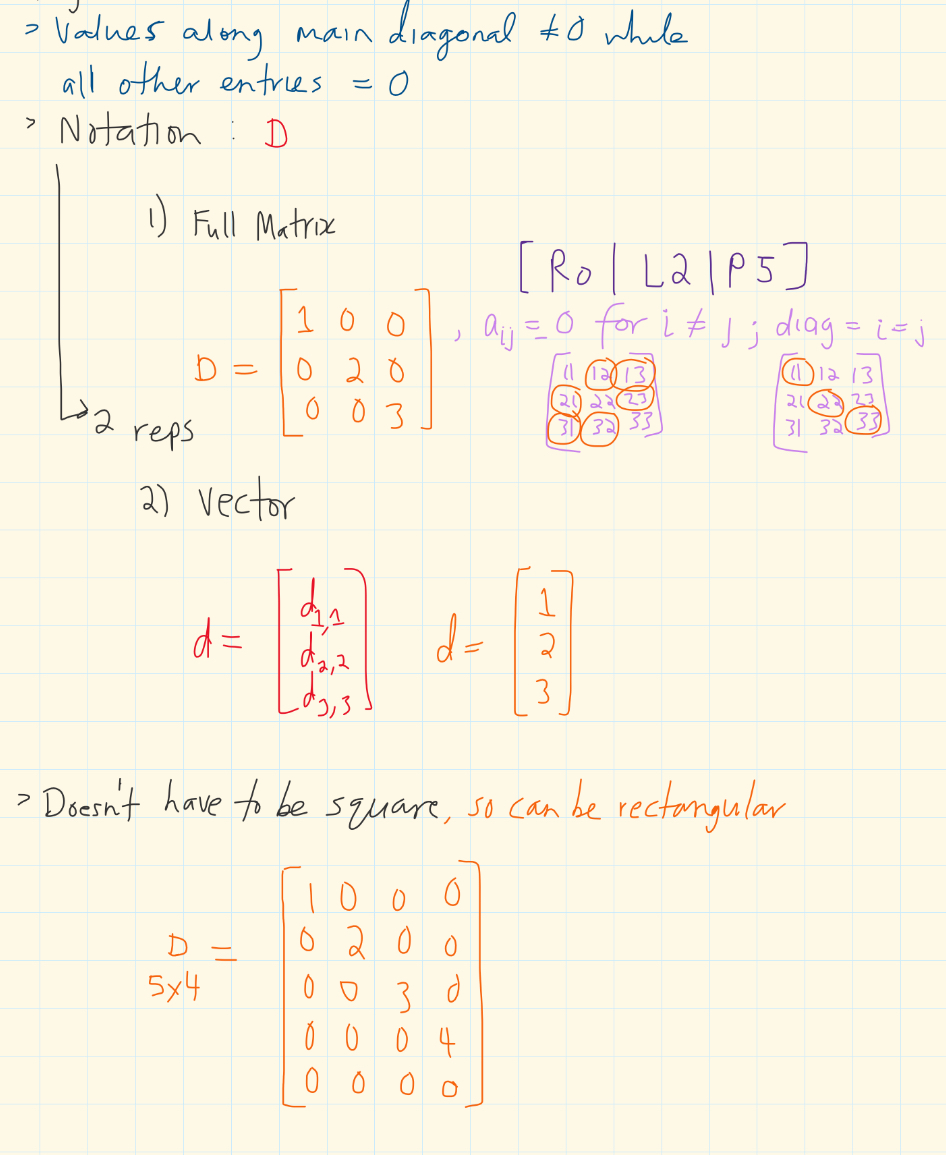 > Values along main diagonal ≠ 0 while
all other entries = 0
> Notation : D
1) Full Matrix
[R0 | L2 | P5]
D = [1 0 0
0 2 0
0 0 3]
, aij = 0 for i ≠ j ; diag = i = j
[11 12 13
21 22 23
31 32 33]
[11 12 13
21 22 23
31 32 33]
2 reps
2) Vector
d = [d1,1
d2,2
d3,3]
d = [1
2
3]
> Doesn't have to be square, so can be rectangular
D =
5x4
[1 0 0 0
0 2 0 0
0 0 3 0
0 0 0 4
0 0 0 0]